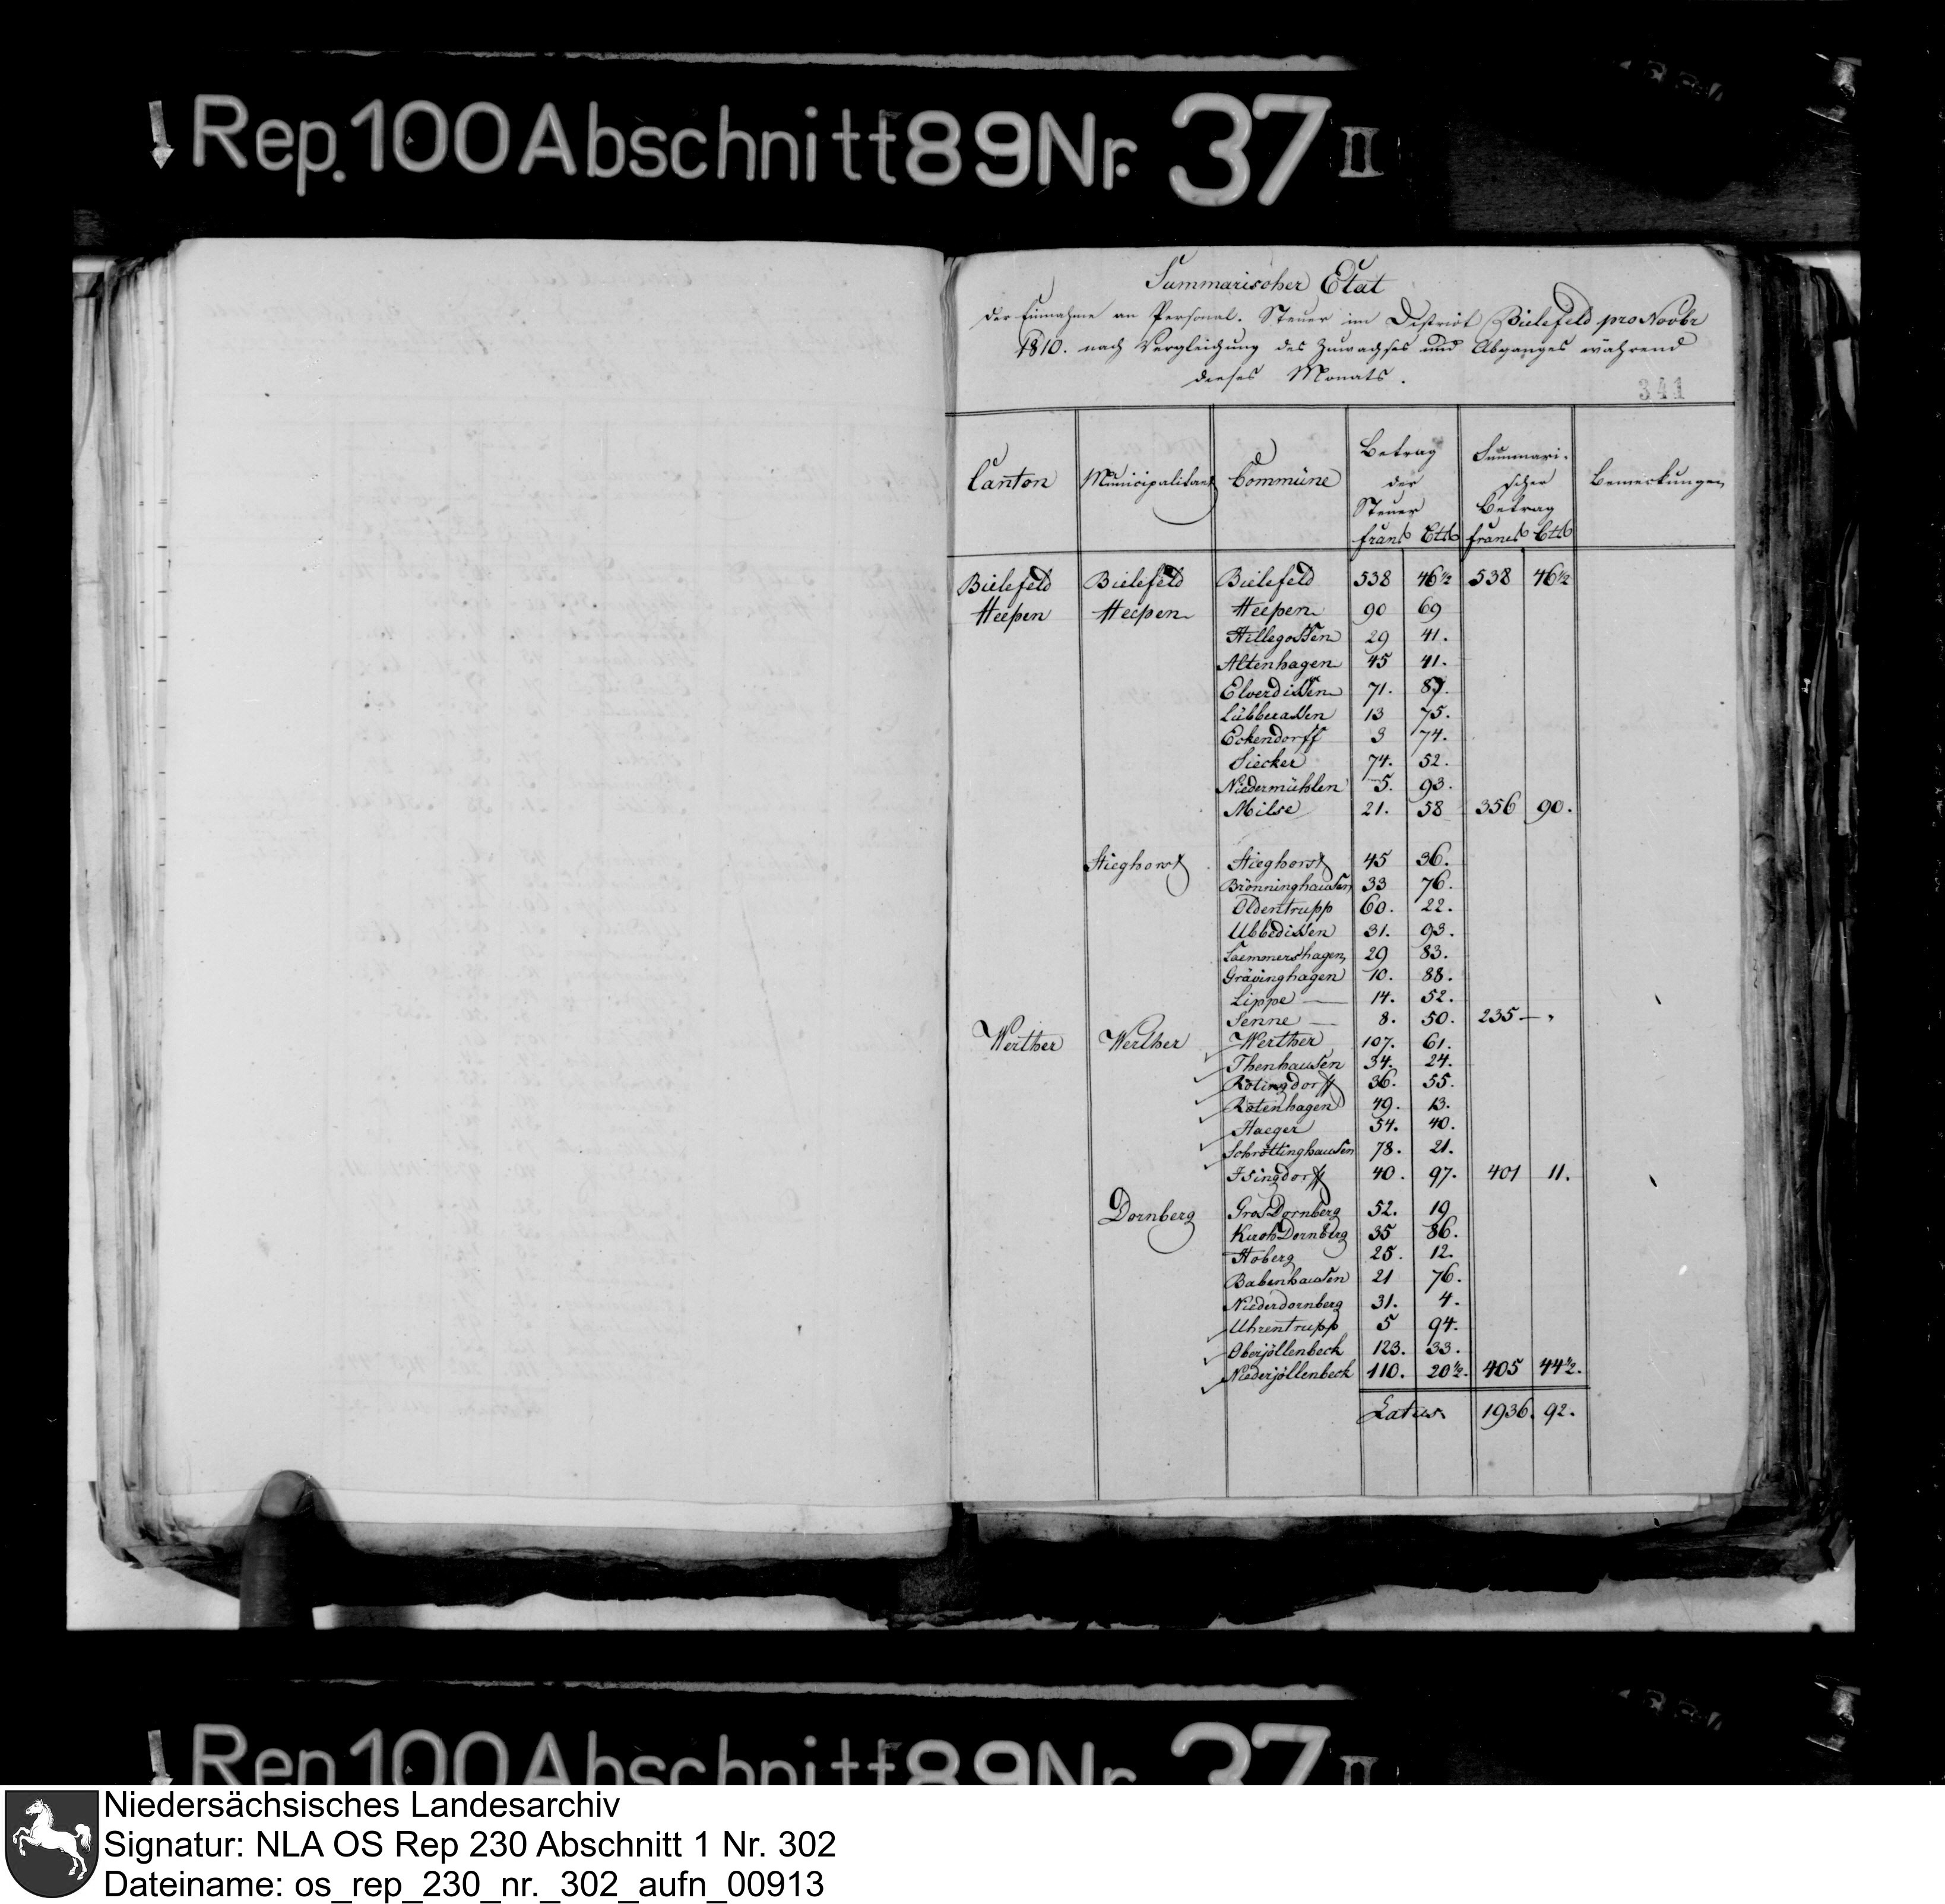 Rep. 100 Abschnitt 89 Nr. 37 II
Summarischer Etat
der Einnahme an Personal. Steuer im District Bielefeld pro Novbr
1810. nach Vergleichung des Zuwachses und Abganges während
dieses Monats.
341
Canton Municipalitaet Commüne Betrag der Steuer francs Cts Summarischer Betrag francs Cts Bemerkungen
Bielefeld Bielefeld Bielefeld 538 46½ 538 46½
Heepen Heepen Heepen 90 69
Hillegossen 29 41.
Altenhagen 45 41.
Elverdissen 71. 87.
Lübberassen 13 75.
Eckendorff 3 74.
Siecker 74. 52.
Niedermühlen 5. 93.
Milse 21. 58 356 90.
Stieghorst Stieghorst 45 36.
Brönninghausen 33 76.
Oldentrupp 60. 22.
Ubbedissen 31. 93.
Laemmershagen 29 83.
Grävinghagen 10. 88.
Lippe — 14. 52.
Senne — 8. 50. 235 — "
Werther Werther Werther 107. 61.
Thenhausen 34. 24.
Rotingdorff 36. 55.
Rotenhagen 49. 13.
Haeger 54. 40.
Schröttinghausen 78. 21.
Isingdorff 40. 97. 401 11.
Dornberg GrosDornberg 52. 19
KirchDornberg 35 86.
Hoberg 25. 12.
Babenhausen 21 76.
Niederdornberg 31. 4.
Uhrentrupp 5 94.
Oberjöllenbeck 123. 33.
Niederjöllenbeck 110. 20½. 405 44½.
Latus 1936. 92.
Rep. 100 Abschnitt 89 Nr. 37 II
Niedersächsisches Landesarchiv
Signatur: NLA OS Rep 230 Abschnitt 1 Nr. 302
Dateiname: os_rep_230_nr._302_aufn_00913